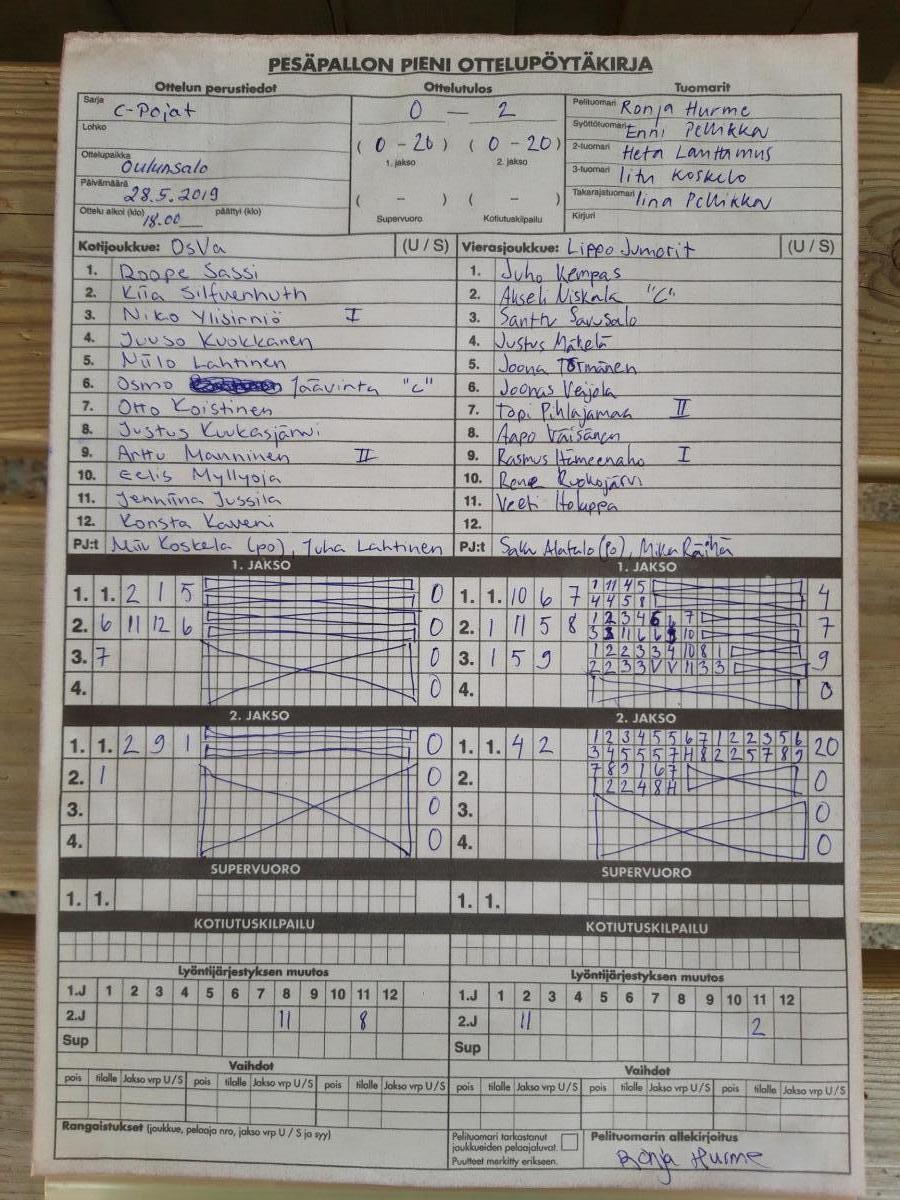 PESÄPALLON PIENI OTTELUPÖYTÄKIRJA
Ottelun perustiedot
Sarja C-Pojat
Lohko
Ottelupaikka Oulunsalo
Päivämäärä 28.5.2019
Ottelu alkoi (klo) 18.00 päättyi (klo)
Ottelutulos
0 – 2
(0 - 20) (0 - 20)
1. jakso 2. jakso
( - ) ( - )
Supervuoro Kotiutuskilpailu
Tuomarit
Pelituomari Ronja Hurme
Syöttötuomari Enni Pellikka
2-tuomari Heta Lanttamus
3-tuomari Iitu Koskelo
Takarajatuomari Iina Pellikka
Kirjuri
Kotijoukkue: OsVa (U / S)
1. Roope Sassi
2. Kiia Silfvenhuth
3. Niko Ylisirniö I
4. Juuso Kuokkanen
5. Niilo Lahtinen
6. Osmo Jäävinta "C"
7. Otto Koistinen
8. Justus Kuukasjärvi
9. Arttu Manninen II
10. Eelis Myllyoja
11. Jenniina Jussila
12. Konsta Kaveni
PJ:t Koskela (po), Juha Lahtinen
Vierasjoukkue: Lippo Juniorit (U / S)
1. Juho Kempas
2. Akseli Niskala "C"
3. Santtu Savusalo
4. Justus Mäkelä
5. Joona Törmänen
6. Joonas Veijola
7. Topi Pihlajamaa II
8. Aapo Väisänen
9. Rasmus Hämeenaho I
10. Rene Ruokojärvi
11. Veeti Holappa
12.
PJ:t Saku Alatalo (po), Mika Räihä
1. JAKSO
1. 1. 2 1 5 0
2. 6 11 12 6 0
3. 7 0
4. 0
2. JAKSO
1. 1. 2 9 1 0
2. 1 0
3. 0
4. 0
SUPERVUORO
1. 1.
KOTIUTUSKILPAILU
1. JAKSO
1. 1. 10 6 7 1 11 4 5 4
4 4 5 8
2. 1 11 5 8 7
3. 1 5 9 1 2 2 3 3 4 10 8 1 9
2 2 3 3 V V 11 3 3
4. 0
2. JAKSO
1. 1. 4 2 1 2 3 4 5 5 6 7 1 2 2 3 5 6 20
3 4 5 5 5 7 H 8 2 2 5 7 8 9
2. 7 8 9 1 6 7 0
1 2 2 4 8 H
3. 0
4. 0
SUPERVUORO
1. 1.
KOTIUTUSKILPAILU
Lyöntijärjestyksen muutos
1.J 1 2 3 4 5 6 7 8 9 10 11 12
2.J 11 8
Sup
Vaihdot
pois tilalle Jakso vrp U / S pois tilalle Jakso vrp U / S pois tilalle Jakso vrp U / S
Lyöntijärjestyksen muutos
1.J 1 2 3 4 5 6 7 8 9 10 11 12
2.J 11 2
Sup
Vaihdot
pois tilalle Jakso vrp U / S pois tilalle Jakso vrp U / S pois tilalle Jakso vrp U / S
Rangaistukset (joukkue, pelaaja nro, jakso vrp U / S ja syy)
Pelituomari tarkastanut
joukkueiden pelaajaluvat.
Puutteet merkitty erikseen.
Pelituomarin allekirjoitus
Ronja Hurme